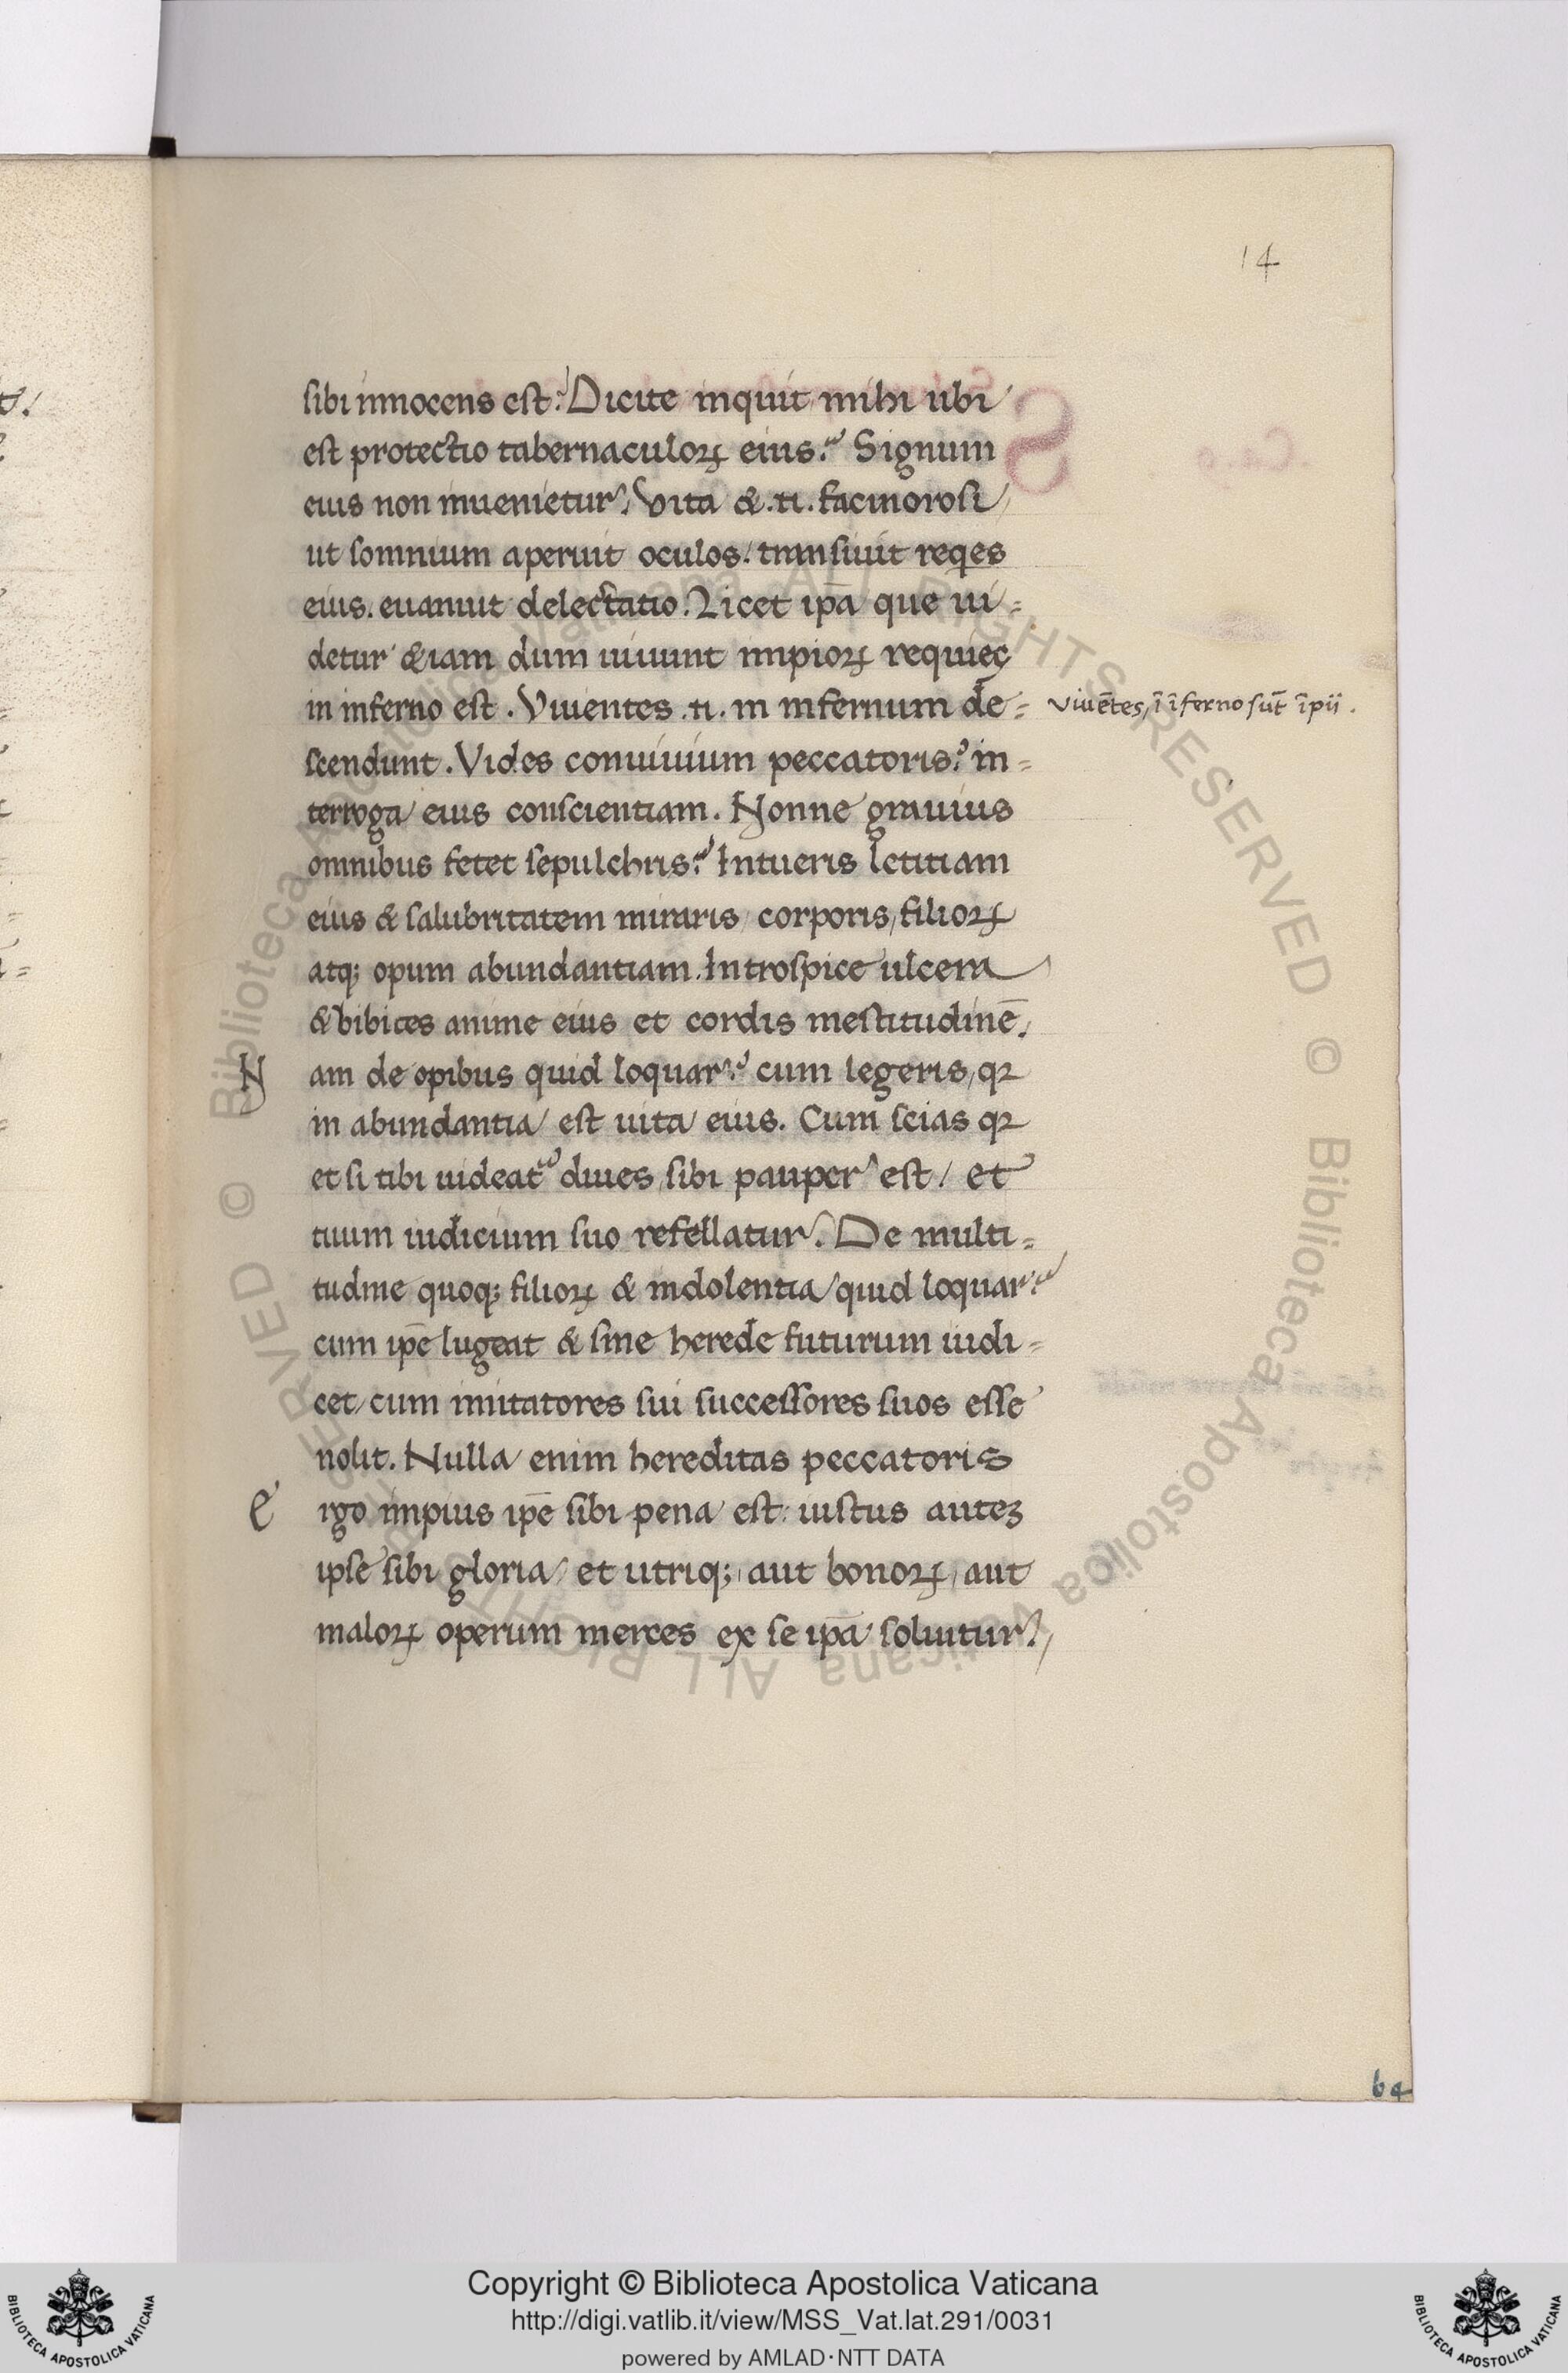 14
sibi innocens est? Dicite inquit mihi ubi
est protectio tabernaculoꝝ eius? Signum
eius non inuenietur. Vita &.n. facinorosi
ut somnium aperuit oculos. transiuit reqes
eius. euanuit delectatio. Licet ip̄a que ui=
detur &iam dum uiuunt impioꝝ requies
in inferno est. Viuentes .n. in infernum de=
viuē̄tes, ī īferno sūt īpii.
scendunt. Vides conuiuium peccatoris? in=
terroga eius conscientiam. Nonne grauius
omnibus fetet sepulchris? Intueris letitiam
eius & salubritatem miraris corporis, filioꝝ
atq; opum abundantiam. Introspice ulcera
& bibices anime eius et cordis mestitudinē.
N am de opibus quid loquar? cum legeris, qꝛ
in abundantia est uita eius. Cum scias qꝛ
et si tibi uideat᷑ diues, sibi pauper est / et
tuum iudicium suo refellatur. De multi=
tudine quoq; filioꝝ & indolentia / quid loquar?
cum ip̄e lugeat & sine herede futurum iudi=
cet / cum imitatores sui successores suos esse
nolit. Nulla enim hereditas peccatoris
E rgo impius ip̄e sibi pena est: iustus auteꝫ
ipse sibi gloria / et utriq; aut bonoꝝ, aut
maloꝝ operum merces ex se ip̄a soluitur.
64
Copyright © Biblioteca Apostolica Vaticana
http://digi.vatlib.it/view/MSS_Vat.lat.291/0031
powered by AMLAD·NTT DATA
BIBLIOTECA APOSTOLICA VATICANA
BIBLIOTECA APOSTOLICA VATICANA